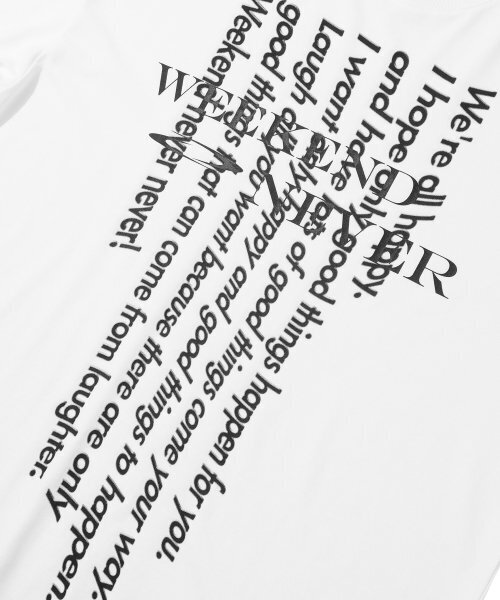 We're all happy.
I hope only good things happen for you.
and have lots of good things come your way.
I want happy and good things to happen.
Laugh as you want because there are only
good things that can come from laughter.
Weekend never never!
WEEKEND
NEVER